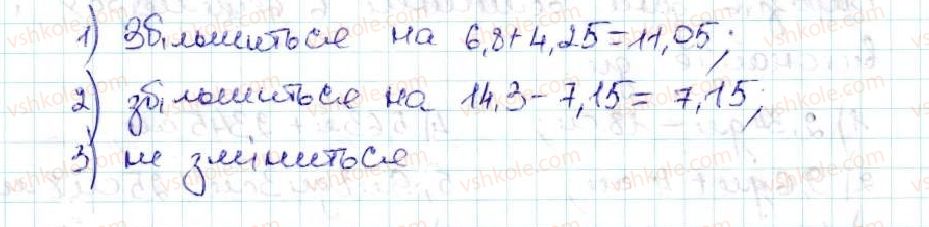 1) Збільшиться на 6,8+4,25=11,05;
2) збільшиться на 14,3-7,15=7,15;
3) не зміниться